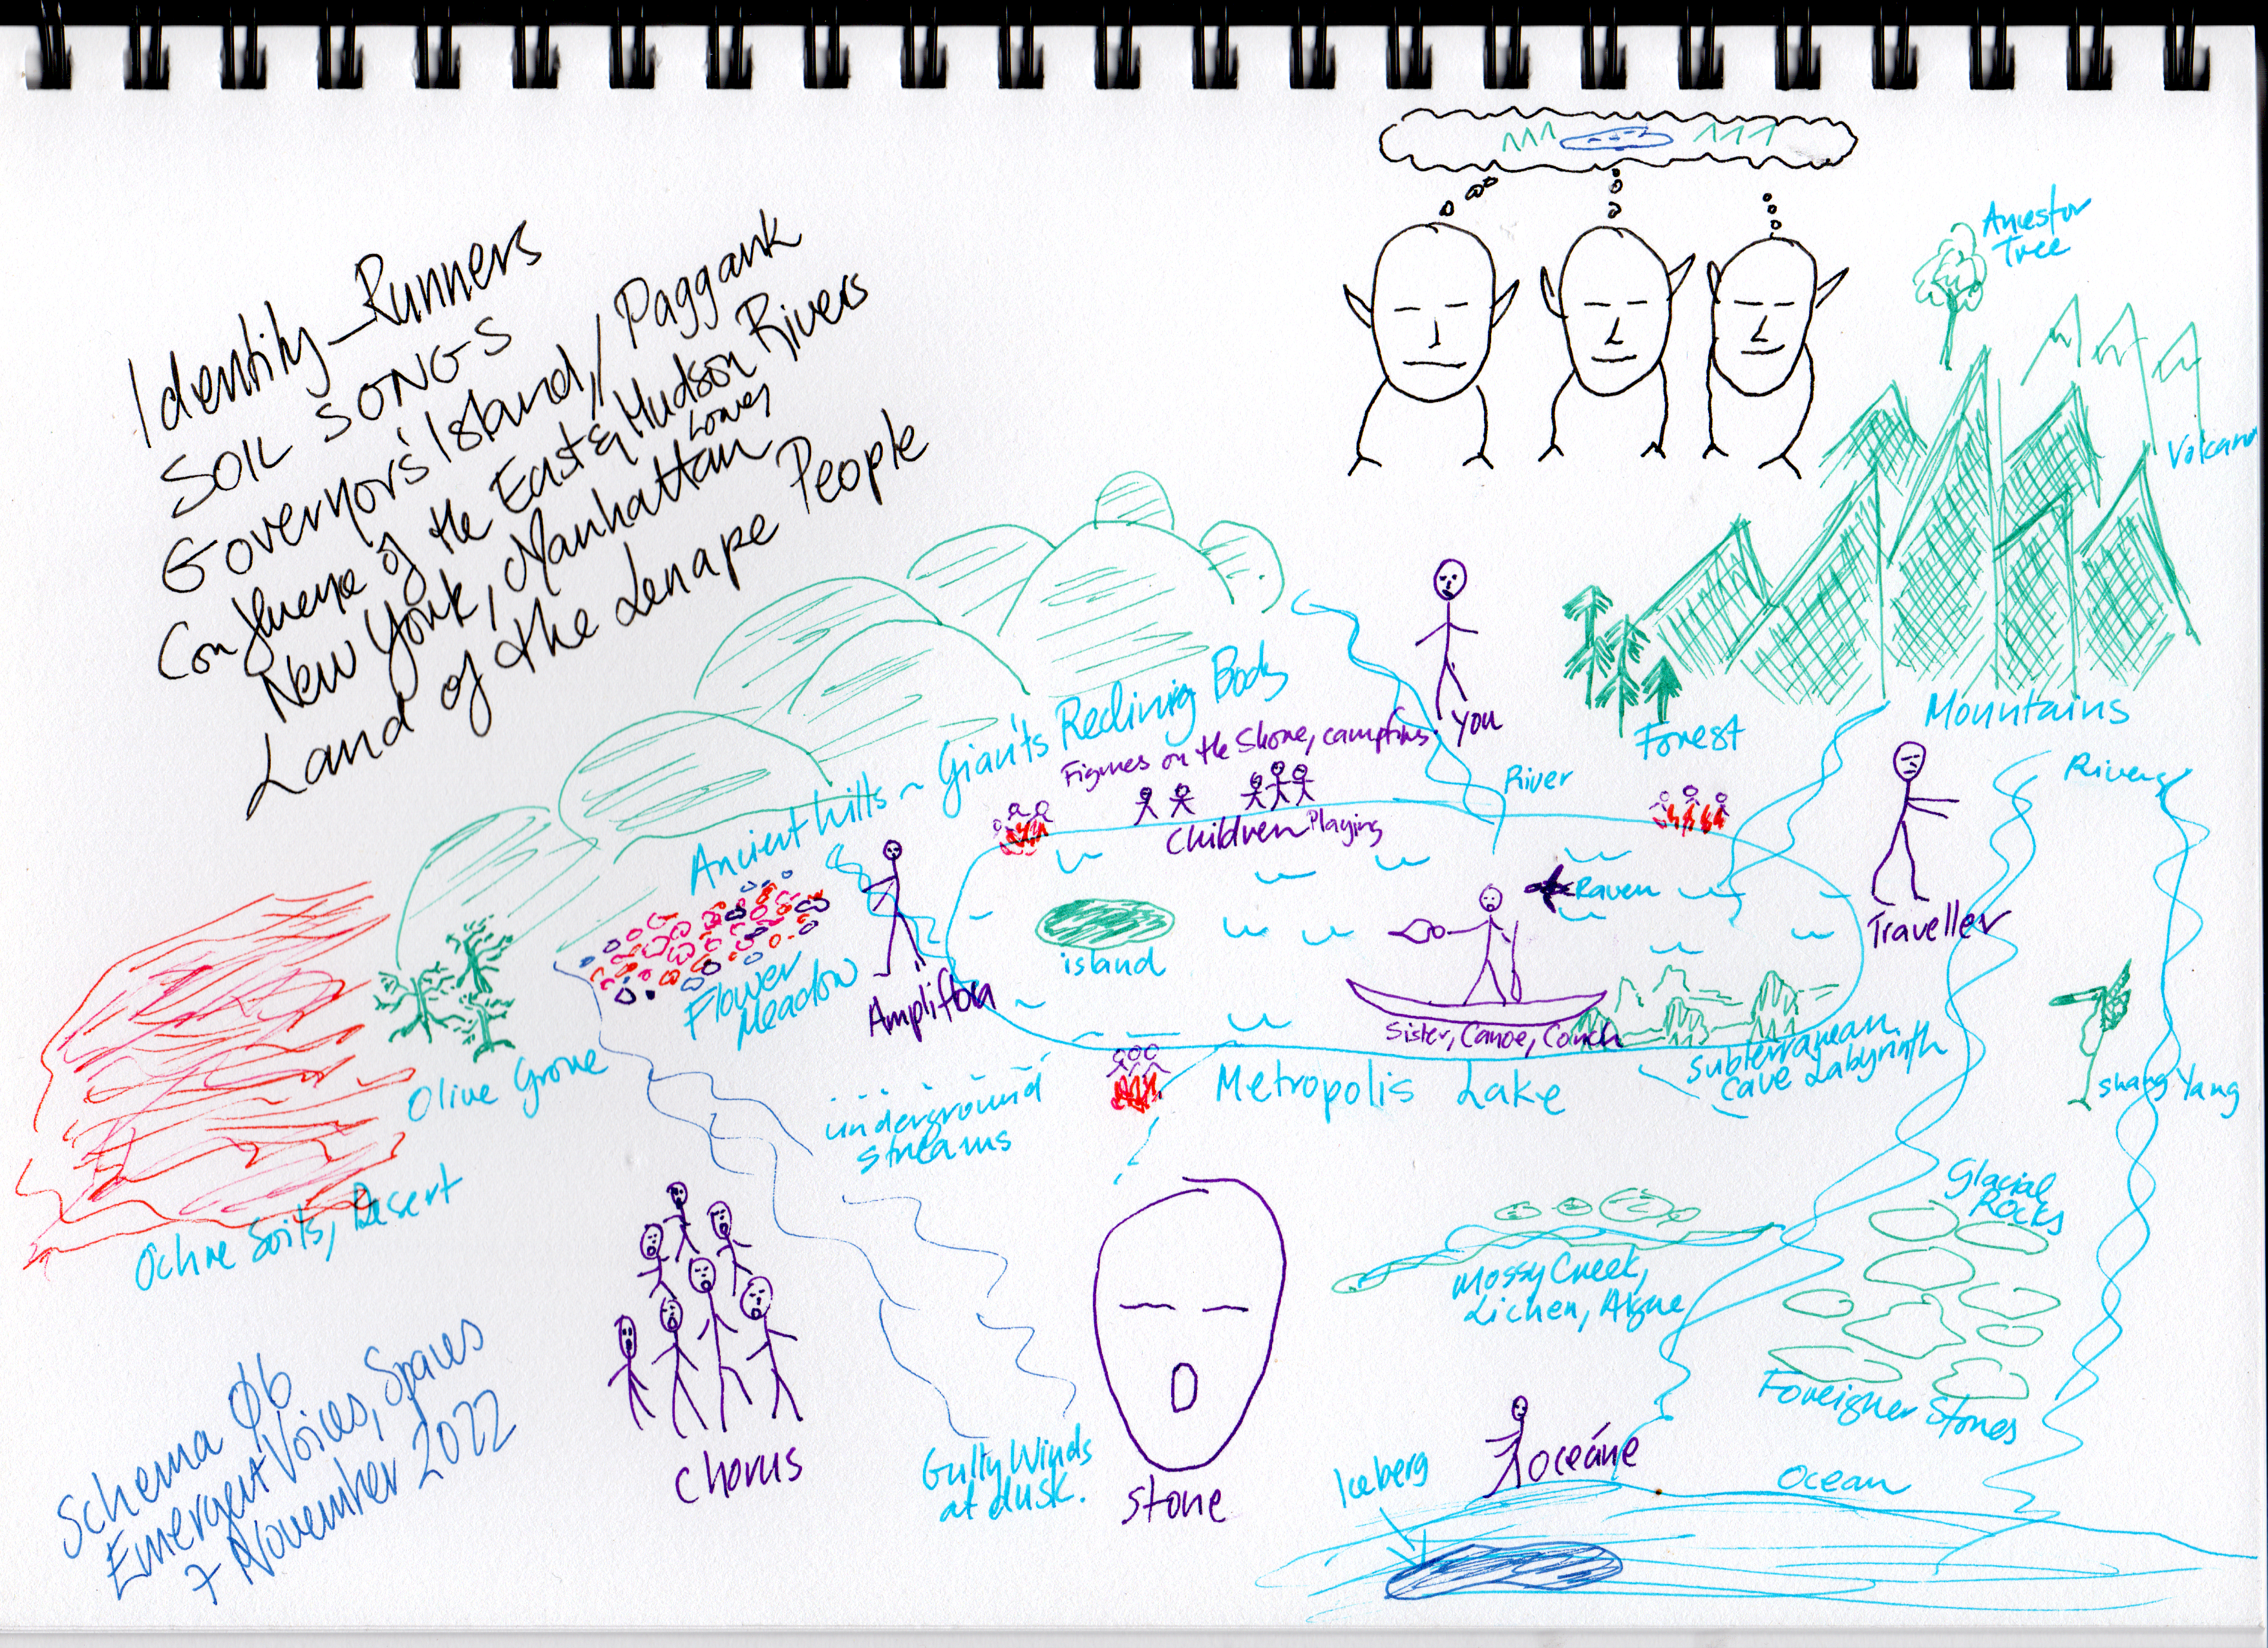 Identity_Runners
SOIL SONGS
Governor's Island / Paggank
Confluence of the East & Hudson Rivers
New York, Lower Manhattan
Land of the Lenape People
Ancestor
Tree
Volcano
Mountains
Forest
You
River
Rivers
Ancient hills ~ Giant's Reclining Body
Figures on the Shore, campfires
Children Playing
Raven
Traveller
island
Flower
Meadow
Ampliflora
Sister, Canoe, Conch
Subterranean
Cave Labyrinth
Shang Yang
Olive Grove
Metropolis Lake
underground
streams
Ochre Soils, Desert
Glacial
Rocks
Mossy Creek,
Lichen, Algae
Foreigner Stones
Chorus
Gulty Winds
at dusk.
Stone
Iceberg
Oceáne
Ocean
Schema 06
Emergent Voices, Spaces
7 November 2022